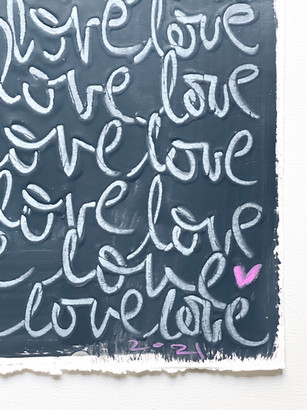 love love
love love
love love
love love
love
love love
2021